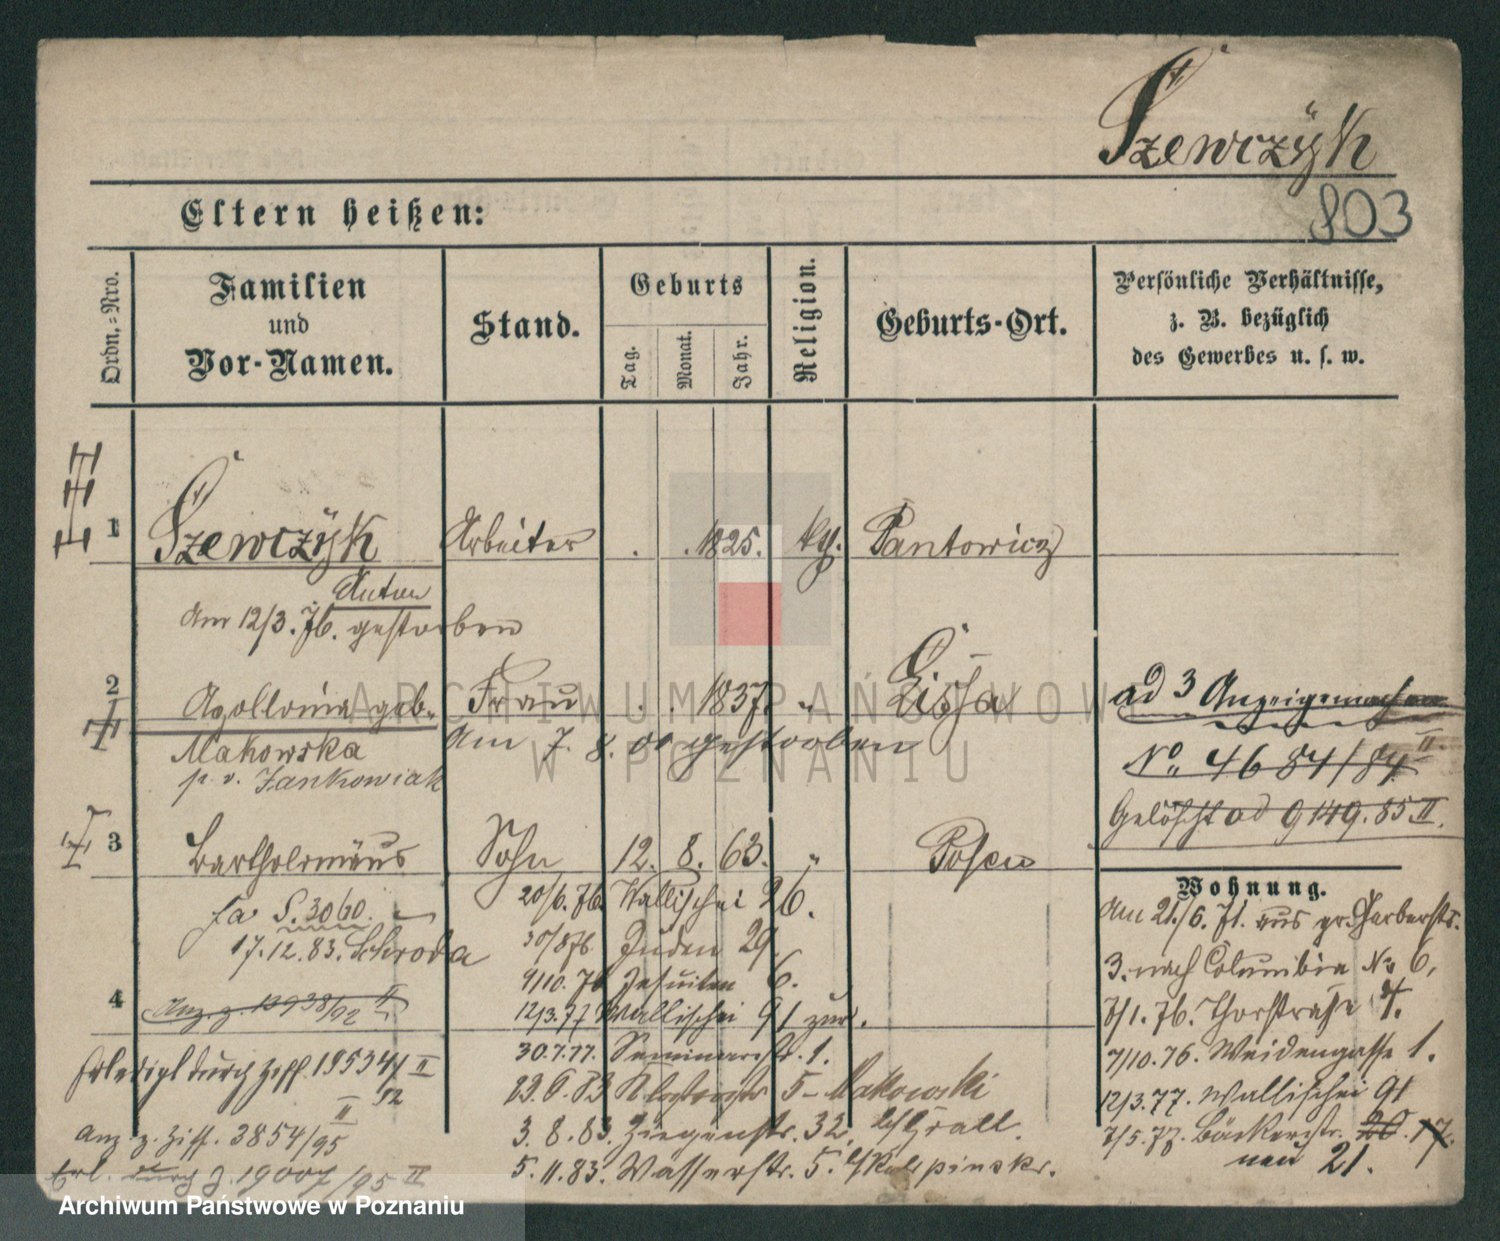 Szewczÿk
803
Eltern heißen:
Ordn.-Nro.
Familien
und
Vor-Namen.
Stand.
Geburts
Tag.
Monat.
Jahr.
Religion.
Geburts-Ort.
Persönliche Verhältnisse,
z. B. bezüglich
des Gewerbes u. s. w.
1 Szewczÿk Arbeiter . . 1825. kg. Pantowicz
Anton
Am 12/3. 76. gestorben
2 Apollonia geb. Frau . . 1837. " Lissa
Makowska Am 7. 8. 01 gestorben
p. v. Jankowiak
ad 3 Anzeigemachen
No. 4684/84 II.
Gelöscht ad 9149.85 II.
3 Bartholomäus Sohn 12. 8. 63. " Posen
fa S. 3060.
17.12.83. Schroda
4 Anz. z. 13938/92 II
Erledigt durch Ziff. 19534/92 II
Anz. z. Ziff. 3854/95 II
Erl. durch J. 19007/95 II
20/6.76. Wallischei 26.
30/8 76 Juden 29
9/10. 76 Jesuiten 6.
12/3.77 Wallischei 91 zur.
30.7.77. Seminarstr. 1.
23.6.83 5 - Makowski
3.8.83. Ziegenstr. 32. b/ Grall.
5.11.83. Wasserstr. 5.
Wohnung.
Am 21./6. 71. aus gr. Gerberstr.
3. nach Columbia No 6,
7/1. 76. Thorstraße 4.
7/10.76. Weidengasse 1.
12/3.77. Wallischei 91
7/5.77. Bäckerstr. 20. 17.
neu 21.
ARCHIWUM PAŃSTWOW
W POZNANIU
Archiwum Państwowe w Poznaniu